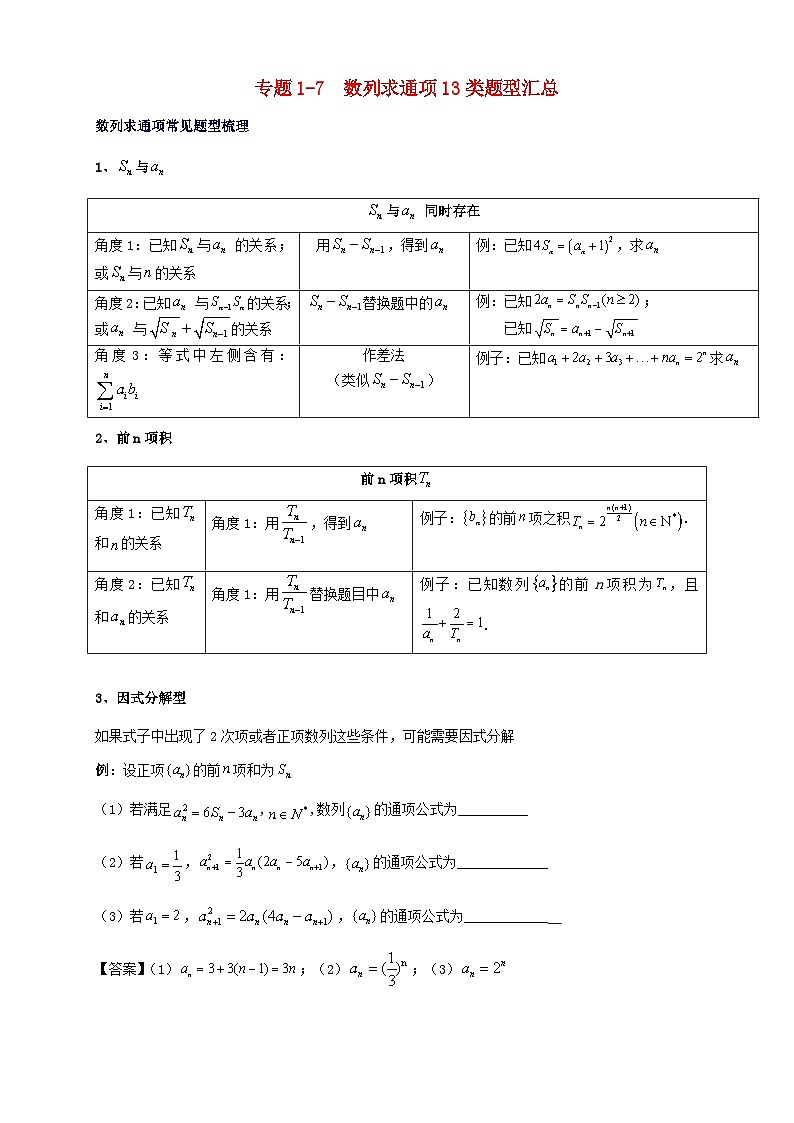 专题1-7 数列求通项13类题型汇总
数列求通项常见题型梳理
1、Sₙ与aₙ
Sₙ与aₙ 同时存在
角度1:已知Sₙ与aₙ 的关系;
或Sₙ与n的关系
用Sₙ−Sₙ₋₁,得到aₙ
例:已知4Sₙ=(aₙ+1)²,求aₙ
角度2:已知aₙ 与Sₙ₋₁Sₙ的关系;
或aₙ 与√Sₙ+√Sₙ₋₁的关系
Sₙ−Sₙ₋₁替换题中的aₙ
例:已知2aₙ=SₙSₙ₋₁(n≥2);
已知√Sₙ=aₙ₊₁−√Sₙ₊₁
角度3:等式中左侧含有:
∑ⁿᵢ₌₁aᵢbᵢ
作差法
(类似Sₙ−Sₙ₋₁)
例子:已知a₁+2a₂+3a₃+…+naₙ=2ⁿ求aₙ
2、前n项积
前n项积Tₙ
角度1:已知Tₙ
和n的关系
角度1:用Tₙ/Tₙ₋₁,得到aₙ
例子:{bₙ}的前n项之积Tₙ=2^(n(n+1)/2)(n∈N*).
角度2:已知Tₙ
和aₙ的关系
角度1:用Tₙ/Tₙ₋₁替换题目中aₙ
例子:已知数列{aₙ}的前n项积为Tₙ,且
1/aₙ+2/Tₙ=1.
3、因式分解型
如果式子中出现了2次项或者正项数列这些条件,可能需要因式分解
例:设正项{aₙ}的前n项和为Sₙ
(1)若满足aₙ²=6Sₙ−3aₙ,n∈N*,数列{aₙ}的通项公式为__________
(2)若a₁=1/3,aₙ₊₁²=1/3aₙ(2aₙ−5aₙ₊₁),{aₙ}的通项公式为_____________
(3)若a₁=2,aₙ₊₁²=2aₙ(4aₙ−aₙ₊₁),{aₙ}的通项公式为______________
【答案】(1)aₙ=3+3(n−1)=3n;(2)aₙ=(1/3)ⁿ;(3)aₙ=2ⁿ